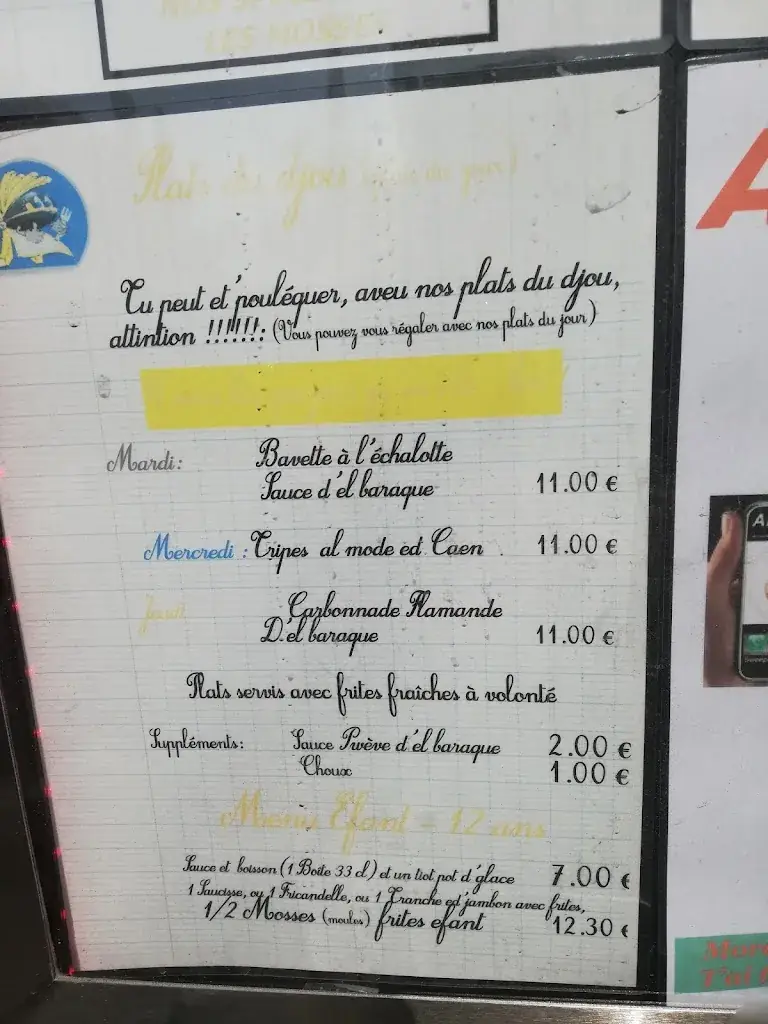 LES MOSSES
Plats du djou (plats du jour)
Tu peut et'pouléquer, aveu nos plats du djou,
attintion !!!!!!!: (Vous pouvez vous régaler avec nos plats du jour)
Mardi: Bavette à l'échalotte
Sauce d'el baraque 11.00 €
Mercredi : Tripes al mode ed Caen . 11.00 €
Jeudi Carbonnade Flamande
D'el baraque 11.00 €
Plats servis avec frites fraîches à volonté
Suppléments: Sauce Pwève d'el baraque 2.00 €
Choux 1.00 €
Menu Efant - 12 ans
Sauce et boisson (1 Boîte 33 cl) et un tiot pot d'glace 7.00 €
1 Saucisse, ou 1 Fricandelle, ou 1 Tranche ed'jambon avec frites,
1/2 Mosses (moules) frites efant 12.30 €
A